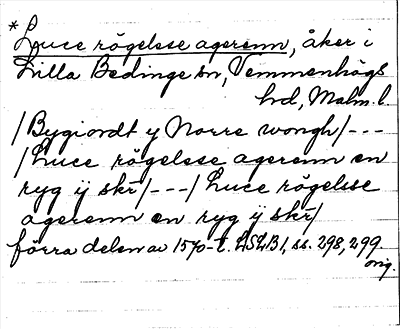 *Luce rögelsse agerenn, åker i
Lilla Bedinge sn, Vemmenhögs
hd, Malm. l.
/Bygiordt y Norre wongh/---
/Luce rögelsse agerenn en
ryg ÿ skr/---/Luce rögelsse
agerenn en ryg ÿ skr/
förra delen av 1570-t. LSLB1, ss. 298, 299.
orig.